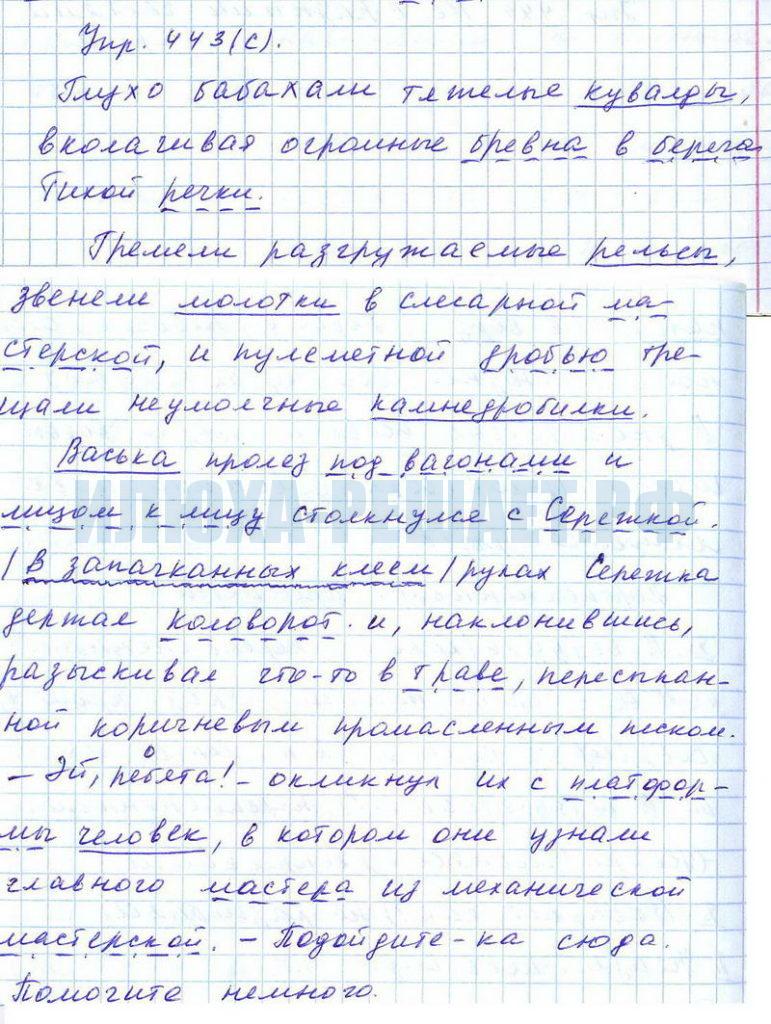 Упр. 443(с).
Глухо бабахали тяжелые кувалды,
вколачивая огромные бревна в берега
Тихой речки.
Гремели разгружаемые рельсы,
звенели молотки в слесарной ма-
стерской, и пулеметной дробью тре-
щали неумолчные камнедробилки.
Васька пролез под вагонами и
ИЛЮХА-РЕШАЕТ.РФ
лицом к лицу столкнулся с Сережкой.
/В запачканных клеем/ руках Сережка
держал коловорот и, наклонившись,
разыскивал что-то в траве, пересыпан-
ной коричневым промасленным песком.
– Эй, ребята! – окликнул их с платфор-
мы человек, в котором они узнали
главного мастера из механической
мастерской. – Подойдите-ка сюда.
Помогите немного.